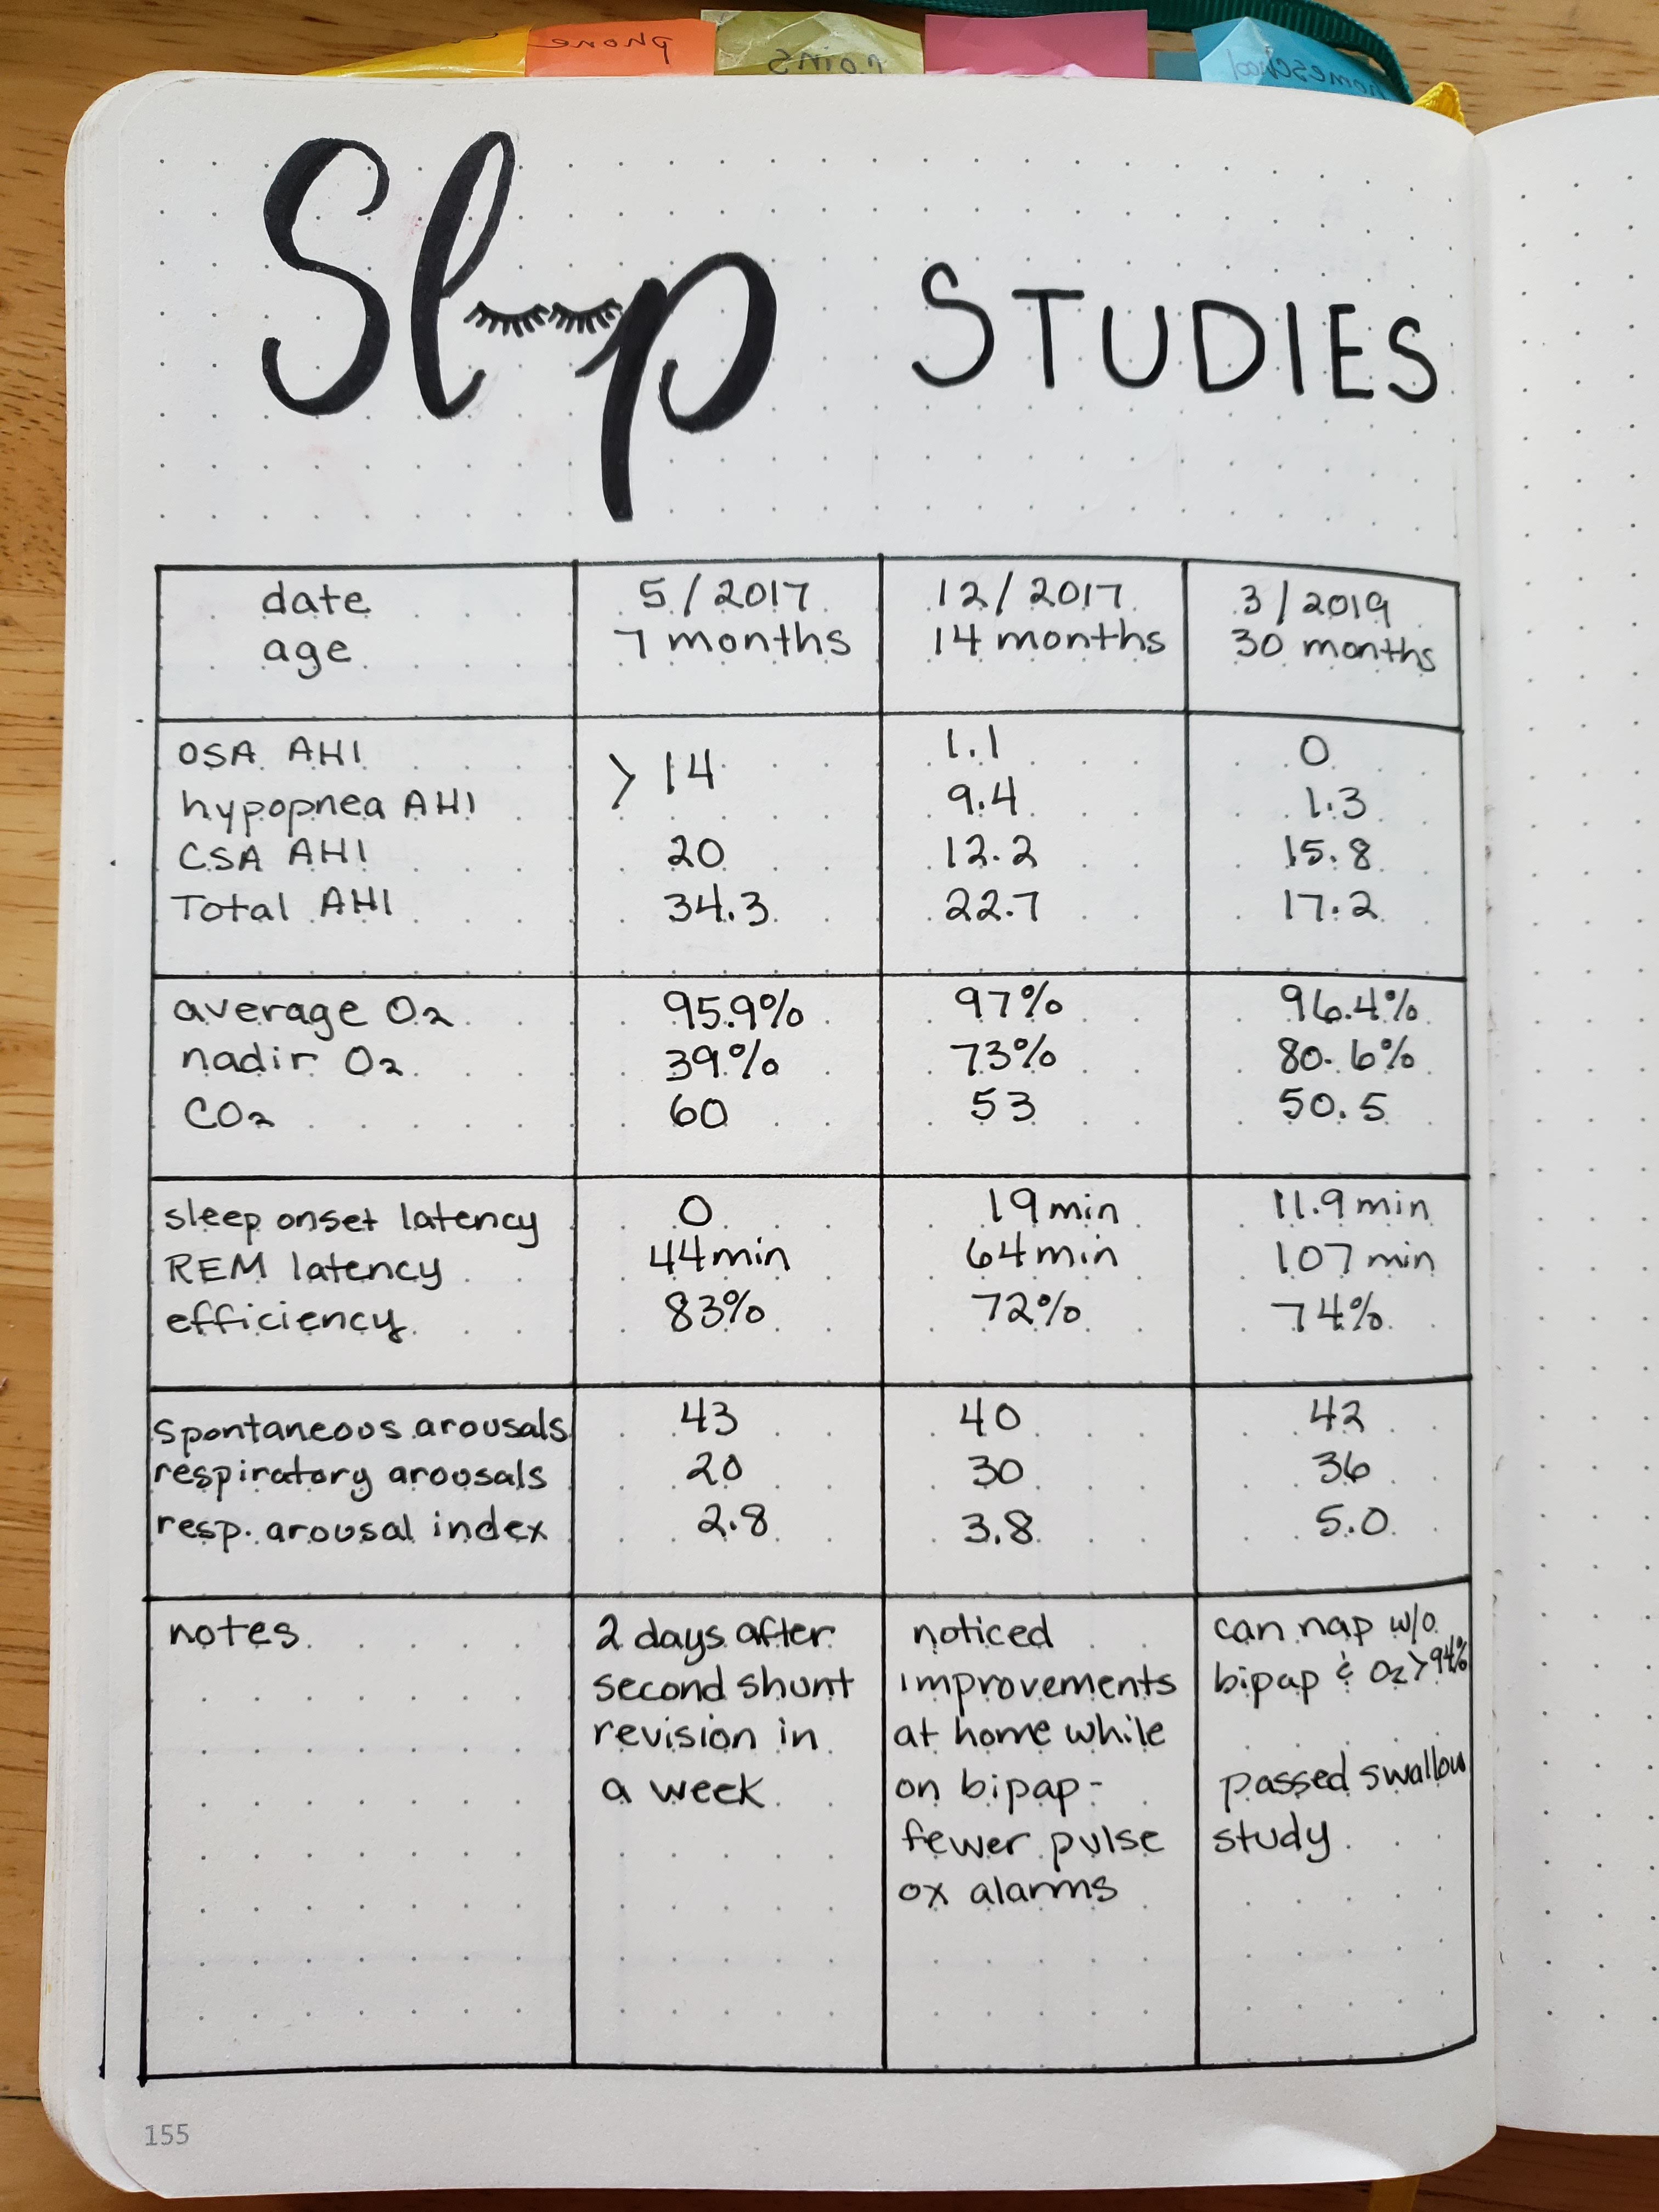 phone
coins
homeschool
Sleep STUDIES
date 5/2017 12/2017 3/2019
age 7 months 14 months 30 months
OSA AHI > 14 1.1 0
hypopnea AHI 9.4 1.3
CSA AHI 20 12.2 15.8
Total AHI 34.3 22.7 17.2
average O2 95.9% 97% 96.4%
nadir O2 39% 73% 80.6%
CO2 60 53 50.5
sleep onset latency 0 19 min 11.9 min
REM latency 44 min 64 min 107 min
efficiency 83% 72% 74%
spontaneous arousals 43 40 42
respiratory arousals 20 30 36
resp. arousal index 2.8 3.8 5.0
notes 2 days after noticed can nap w/o
second shunt improvements bipap & O2 > 94%
revision in at home while
a week on bipap- passed swallow
fewer pulse study
ox alarms
155